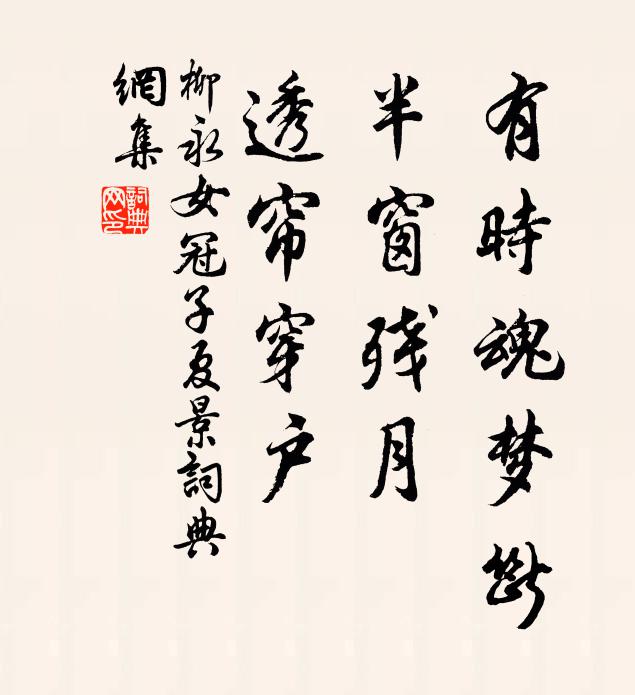 有時魂梦斷
半窗残月
透帘穿户
柳永女冠子夏景詞典
網集
詞典
网印